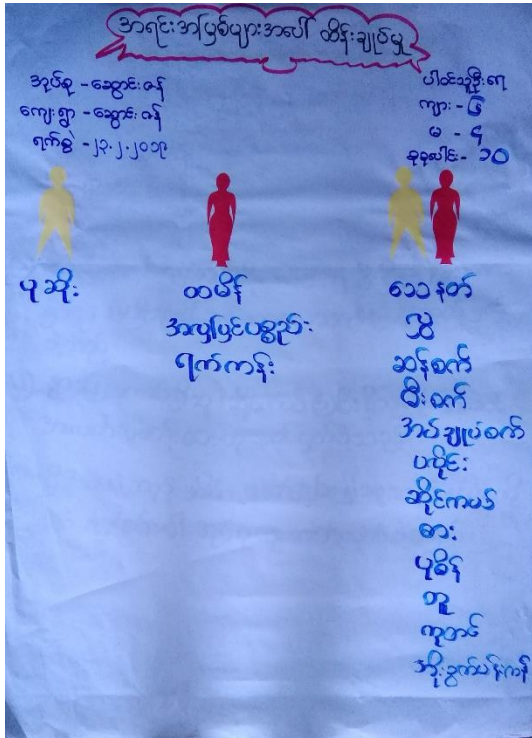 အရင်းအမြစ်များအပေါ် ထိန်းချုပ်မှု
အုပ်စု - ဆောင်းဇန်
ကျေးရွာ - ဆောင်းဇန်
ရက်စွဲ - ၂၃.၂.၂၀၁၉
ပါဝင်သူဦးရေ
ကျား - ၆
မ - ၄
စုစုပေါင်း - ၁၀
ပုဆိုး
ထမိန်
အလှပြင်ပစ္စည်း
ရက်ကန်း
သေနတ်
လွှ
ဆန်စက်
မီးစက်
အပ်ချုပ်စက်
ပထိုင်း
ဆိုင်ကယ်
ဓား
ပုဆိန်
တူ
ကုတင်
အိုးခွက်ပန်းကန်